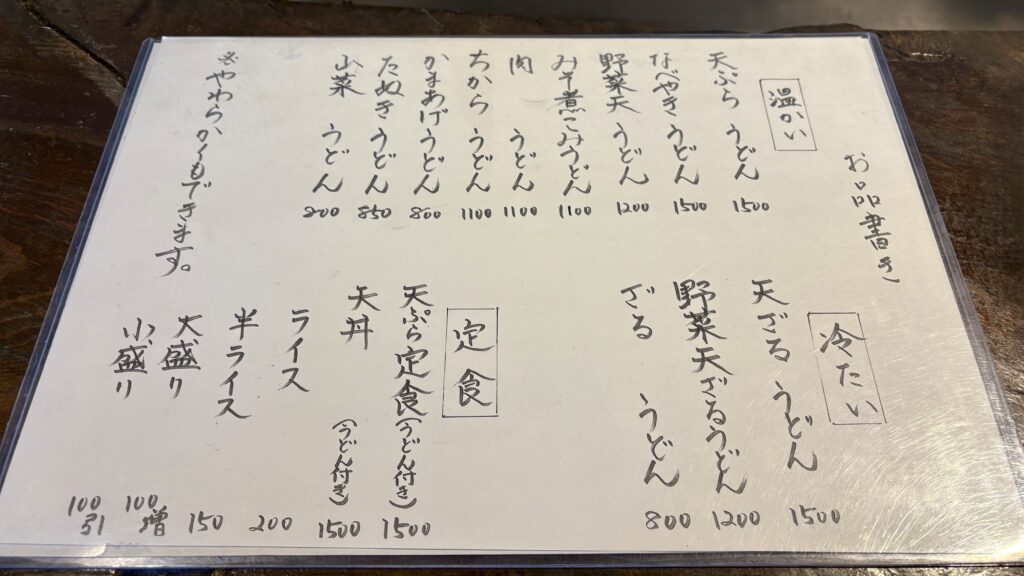 お品書き
温かい
天ぷら うどん 1500
なべやきうどん 1500
野菜天 うどん 1200
みそ煮こみうどん 1100
肉 うどん 1100
ちから うどん 1100
かまあげうどん 800
たぬき うどん 850
山菜 うどん 800
※やわらかくもできます。
冷たい
天ざる うどん 1500
野菜天ざるうどん 1200
ざる うどん 800
定食
天ぷら定食(うどん付き) 1500
天丼 (うどん付き) 1500
ライス 200
半ライス 150
大盛り 100増
小盛り 100引